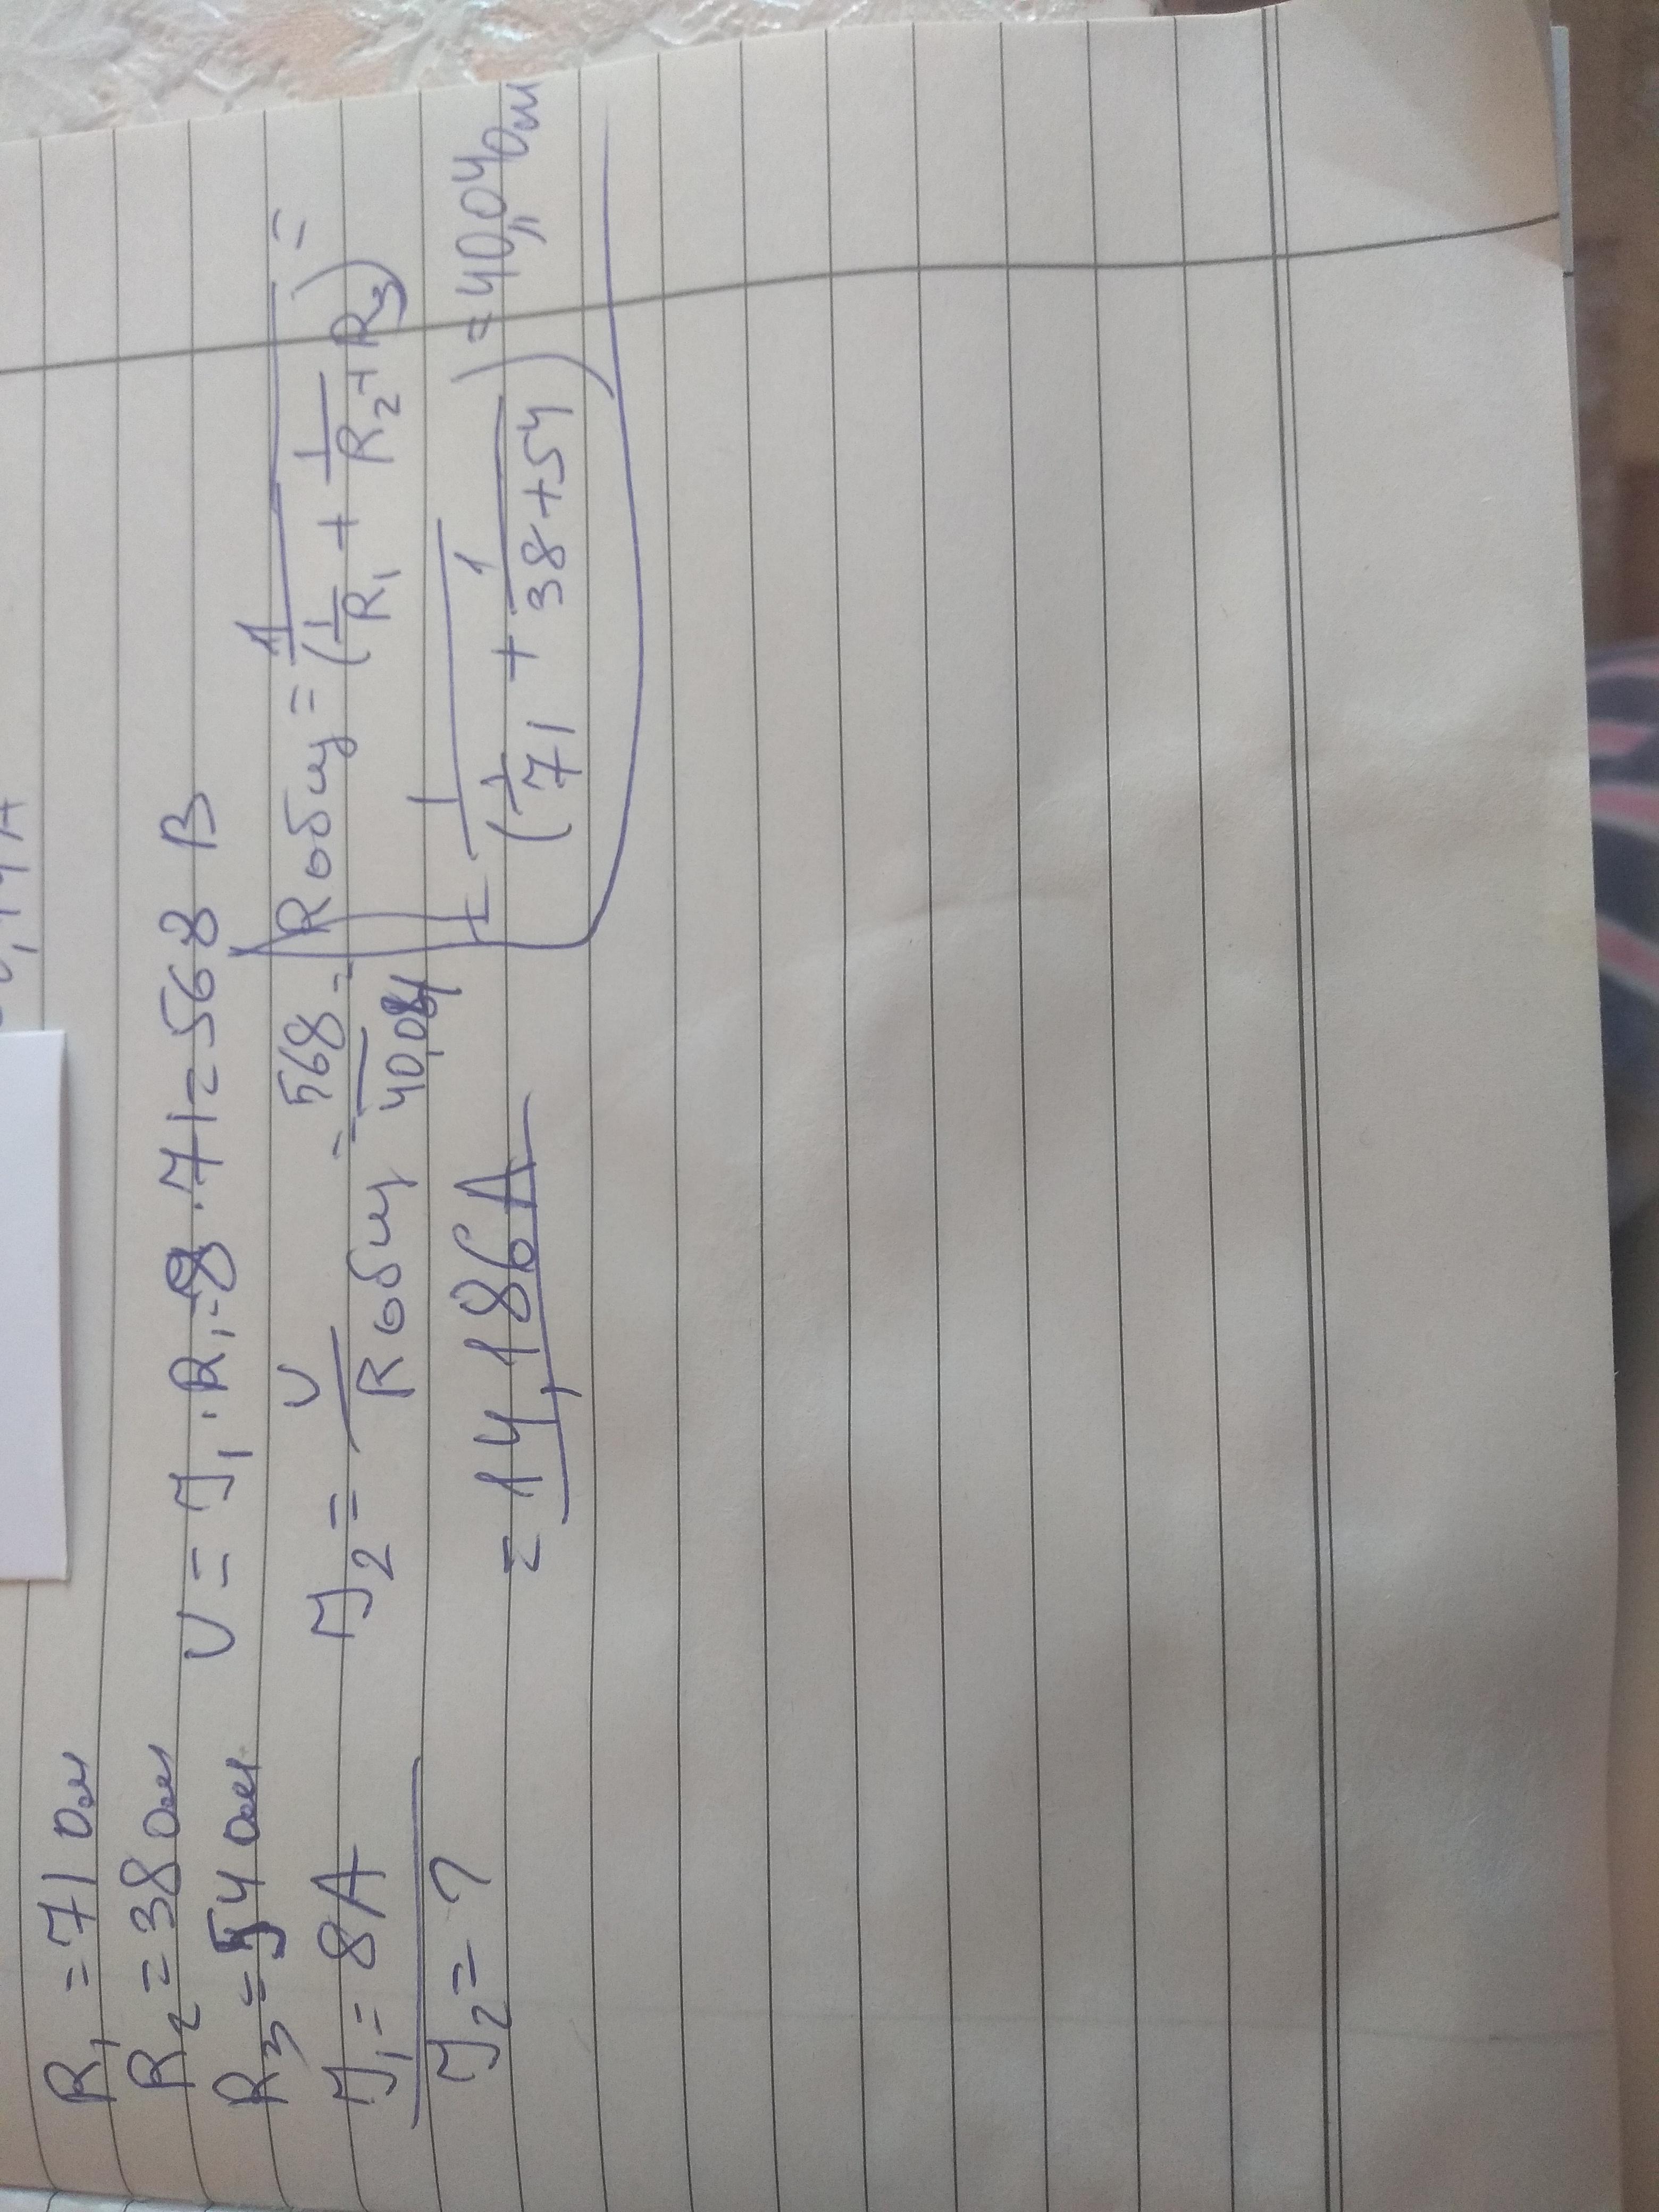 R₁ = 71 Ом
R₂ = 38 Ом
R₃ = 54 Ом
J₁ = 8А
J₂ = ?
U = J₁ · R₁ = 8 · 71 = 568 В
J₂ = U / Rобщ = 568 / 40,04 =
= 14,186А
Rобщ = 1 / (1/R₁ + 1/(R₂ + R₃)) =
= 1 / (1/71 + 1/(38+54)) = 40,04 Ом